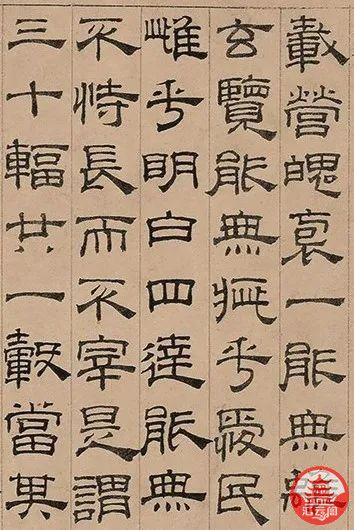 載營魄袌一能無離
玄覽能無疵乎愛民
雌乎明白四達能無
不恃長而不宰是謂
三十輻共一轂當其